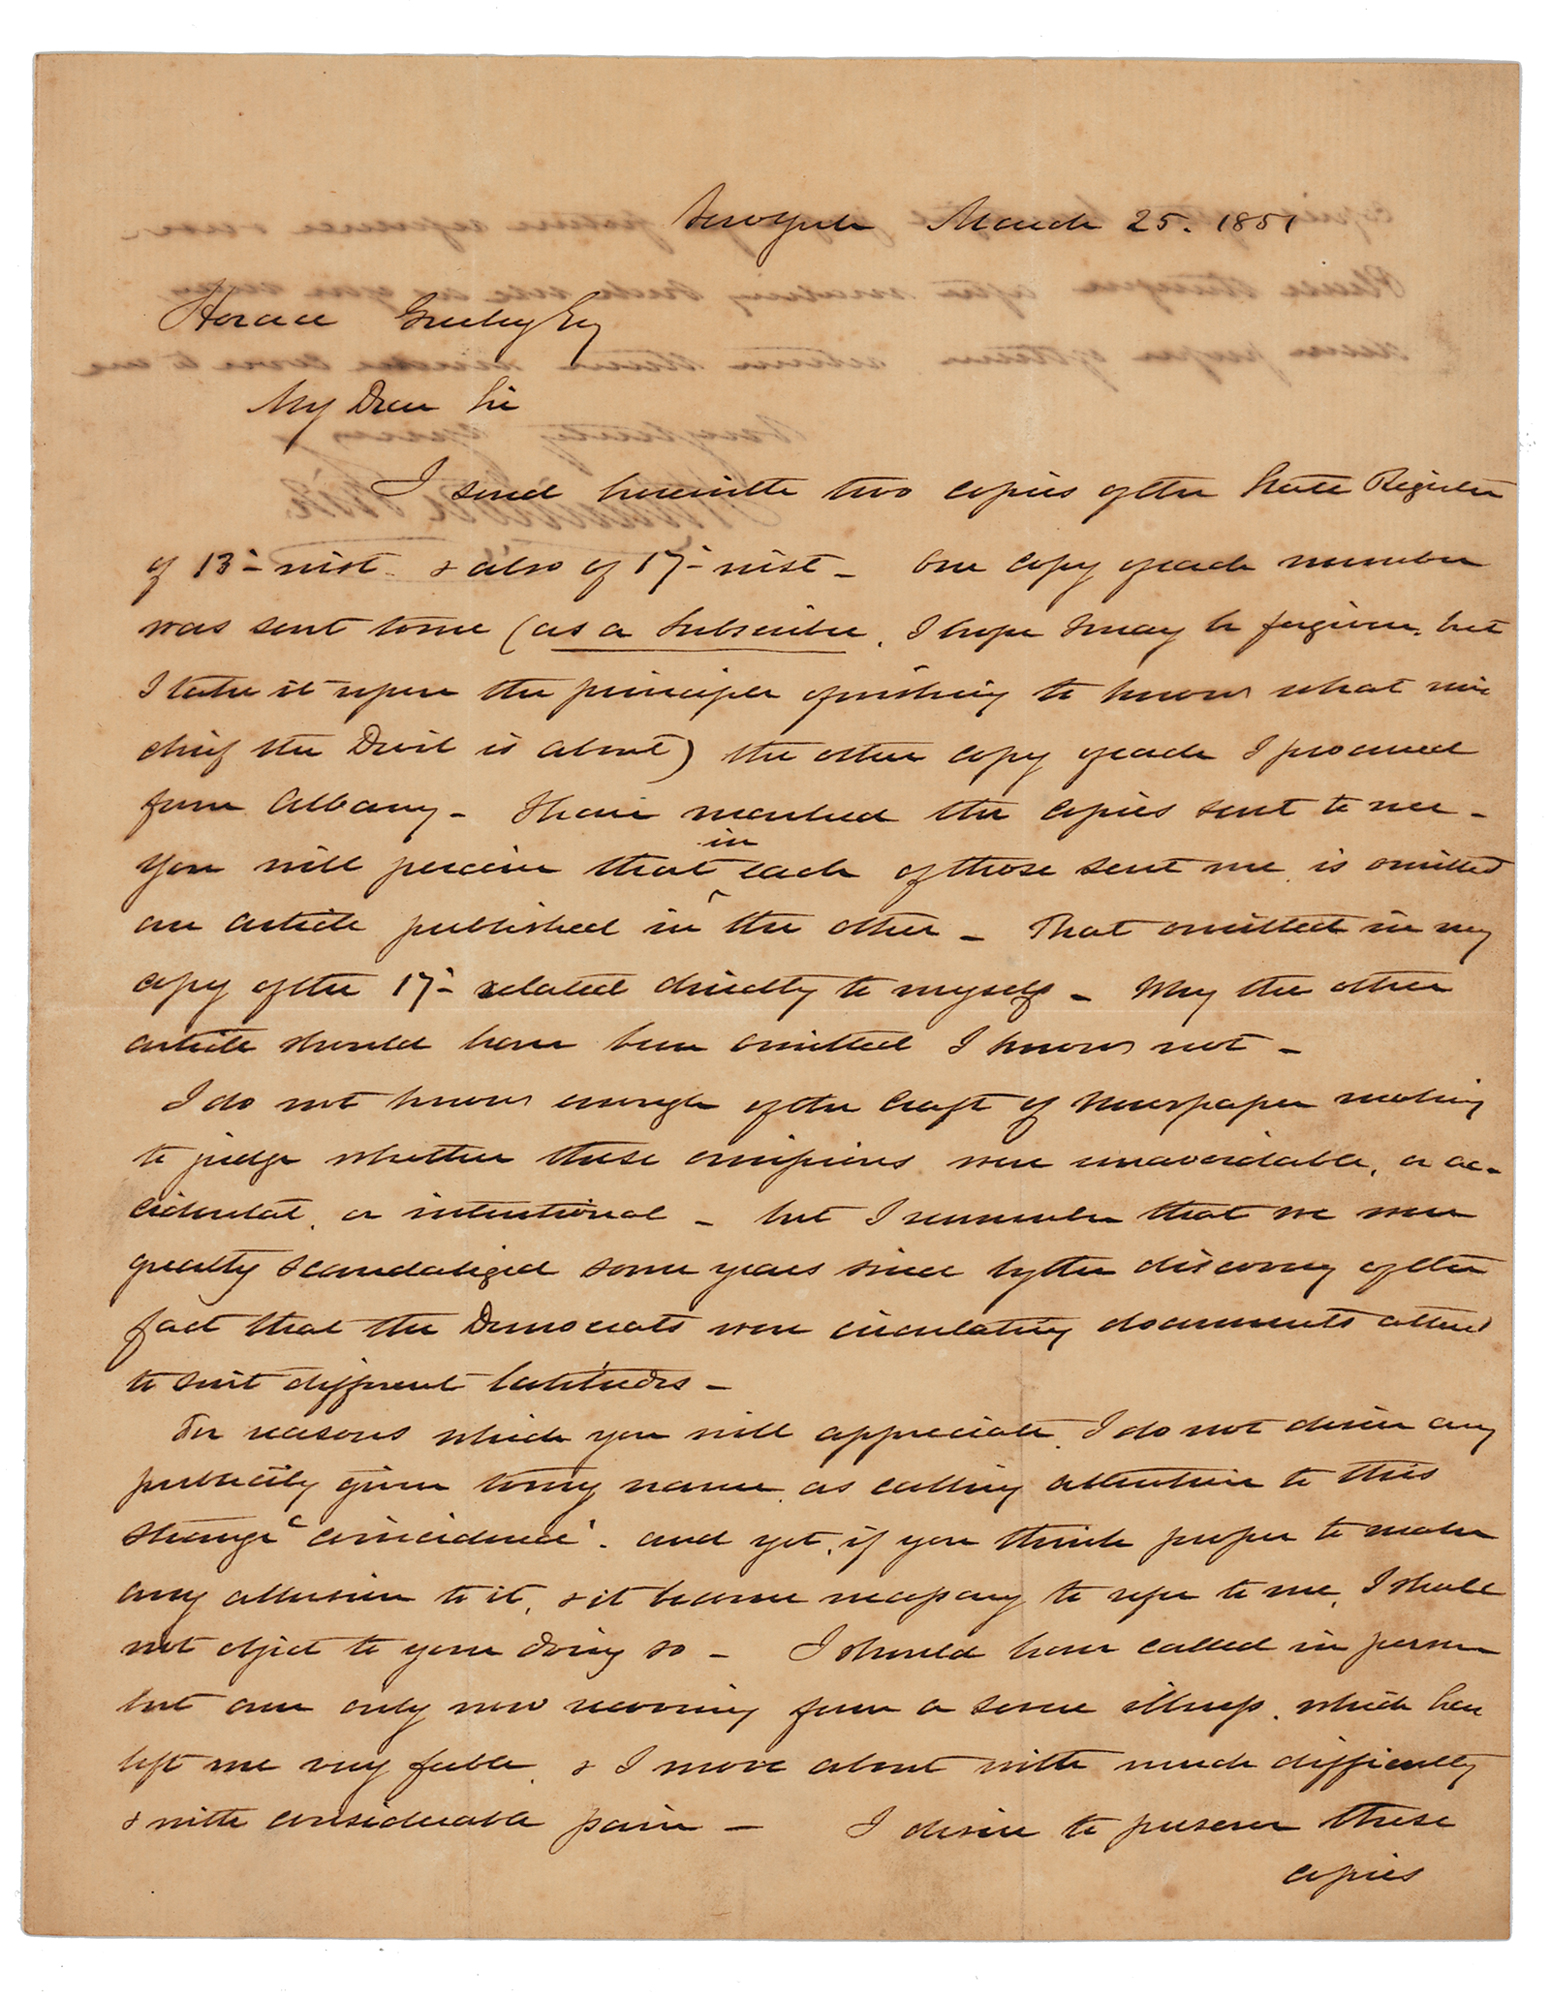 New York March 25. 1851
Horace Greeley Esq
My Dear Sir
I send herewith two copies of the State Register
of 13- inst. & also of 17- inst - One copy of each number
was sent to me (as a subscriber. I hope I may be forgiven, but
I take it upon the principle of wishing to know what mis
chief the Devil is about) the other copy of each I procured
from Albany - I have marked the copies sent to me -
You will perceive that in each of those sent me, is omitted
an article published in the other - That omitted in my
copy of the 17- related directly to myself - Why the other
article should have been omitted I know not -
I do not know enough of the craft of Newspaper making
to judge whether these omissions were unavoidable, or ac-
cidental, or intentional - but I remember that we were
greatly scandalized some years since by the discovery of the
fact that the Democrats were circulating documents altered
to suit different latitudes -
For reasons which you will appreciate, I do not desire any
publicity given to my name, as calling attention to this
strange 'coincidence'. and yet, if you think proper to make
any allusion to it, & it become necessary to refer to me, I shall
not object to your doing so - I should have called in person
but am only now recovering from a severe illness, which has
left me very feeble, & I move about with much difficulty
& with considerable pain - I desire to preserve these
copies